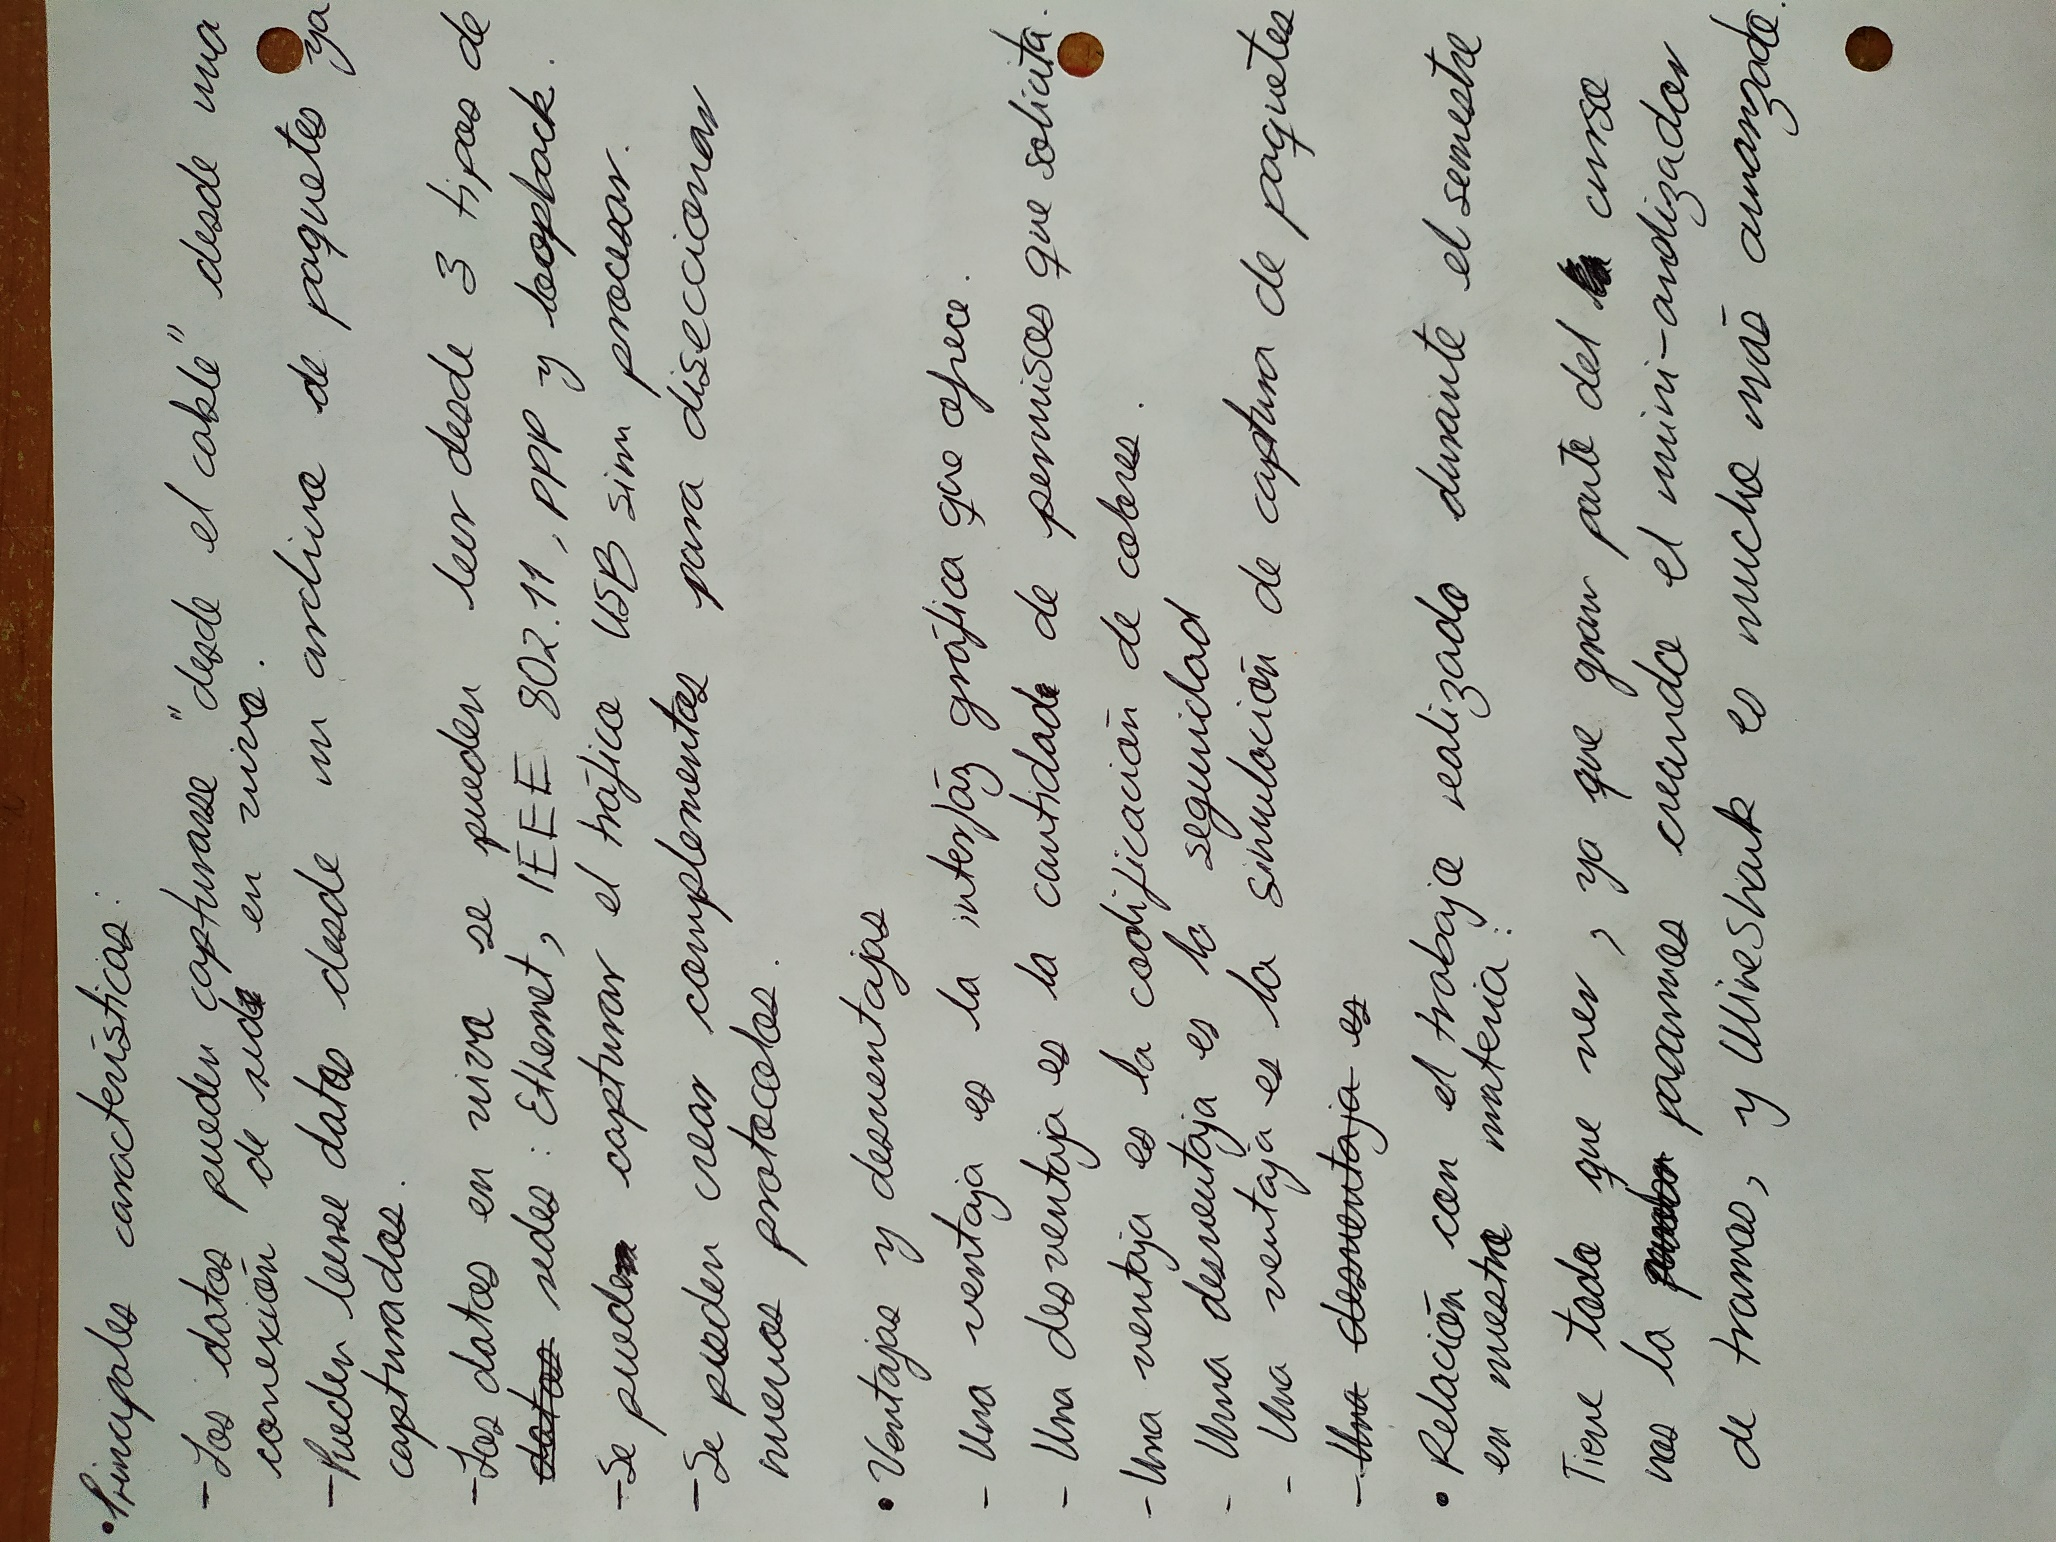 • Principales características:
- Los datos pueden capturarse "desde el cable" desde una
conexión de red en vivo.
- Pueden leerse datos desde un archivo de paquetes ya
capturados.
- Los datos en vivo se pueden leer desde 3 tipos de
datos redes: Ethernet, IEEE 802.11, PPP y loopback.
- Se puede capturar el tráfico USB sin procesar.
- Se pueden crear complementos para diseccionar
nuevos protocolos.
• Ventajas y desventajas
- Una ventaja es la interfáz gráfica que ofrece.
- Una desventaja es la cantidad de permisos que solicita.
- Una ventaja es la codificación de colores.
- Una desventaja es la seguridad
- Una ventaja es la simulación de captura de paquetes
- Una desventaja es
• Relación con el trabajo realizado durante el semestre
en nuestra materia:
Tiene todo que ver, ya que gran parte del curso
nos la pasamos creando el mini-analizador
de tramas, y WireShark es mucho más avanzado.